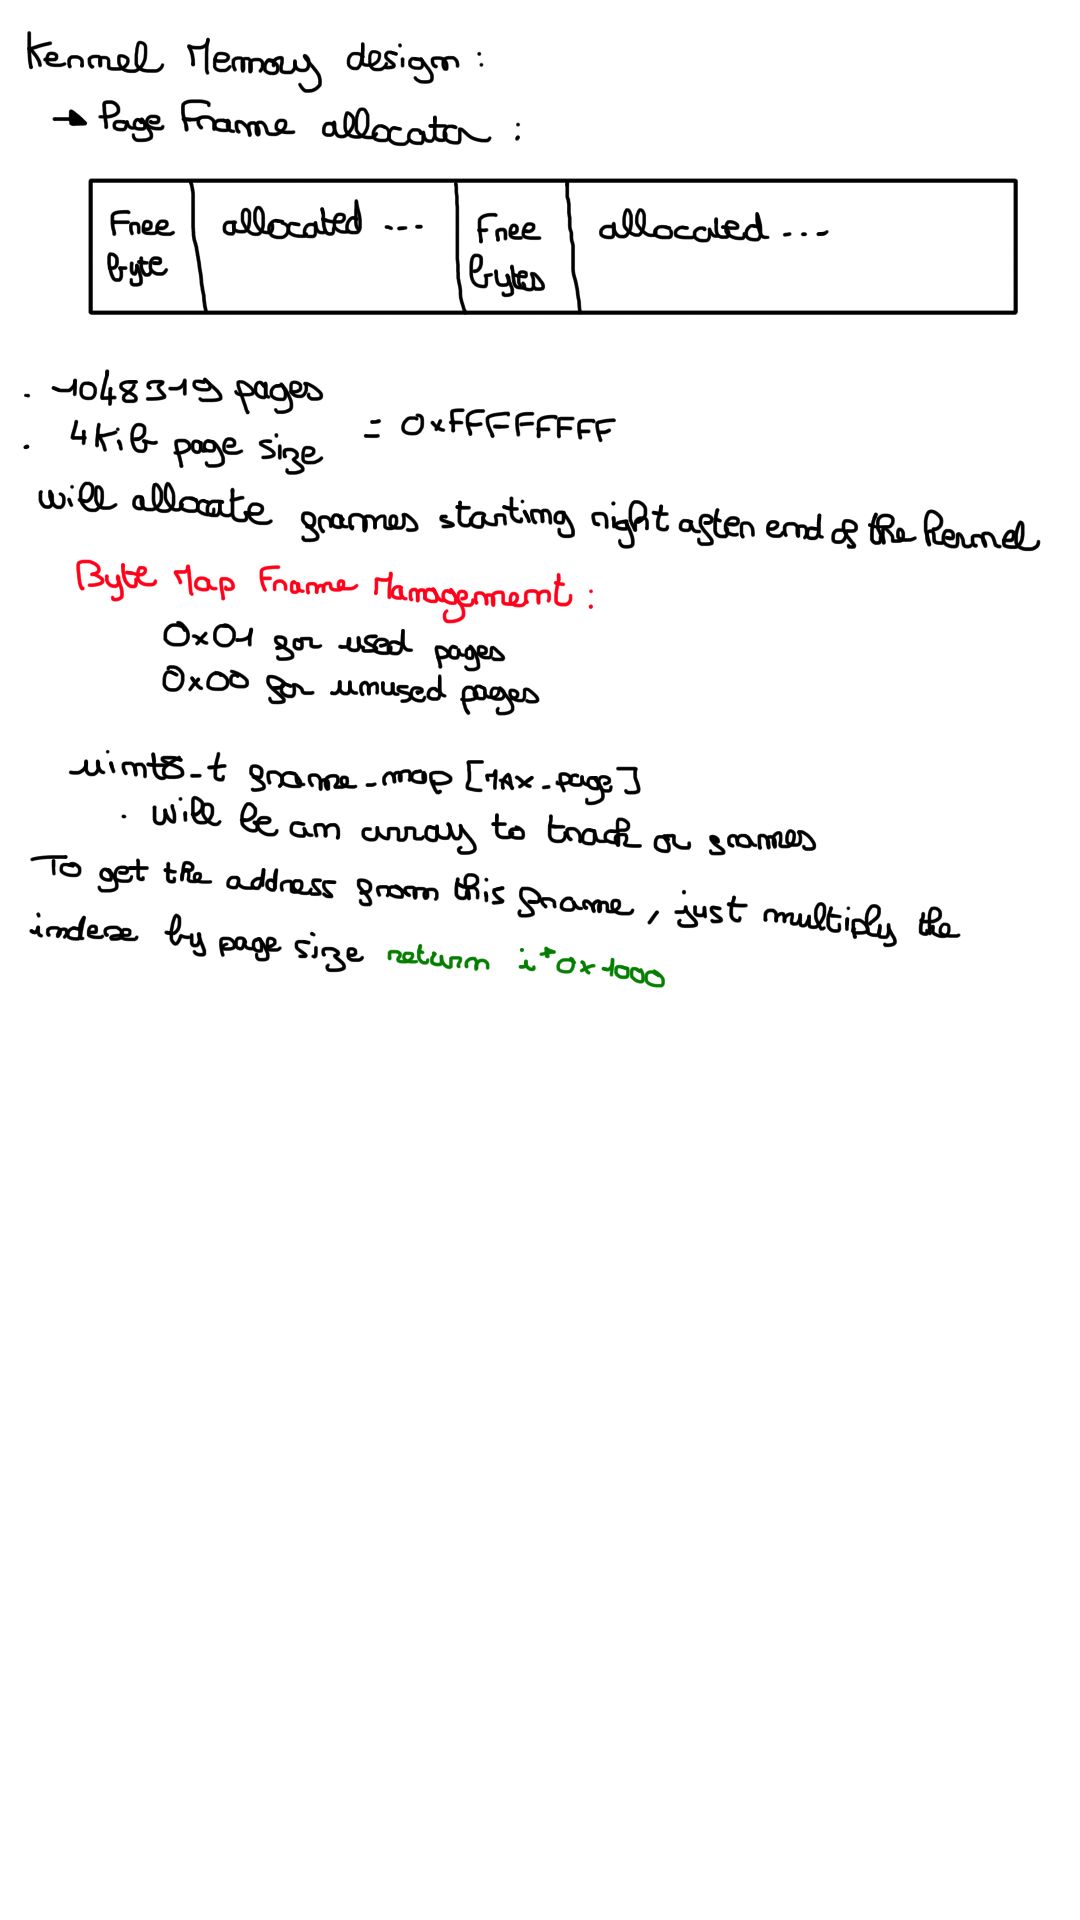 Kernel Memory design :
→ Page Frame allocator :
Free byte
allocated ...
Free bytes
allocated ...
. 1048319 pages
. 4Kib page size
= 0xFFFFFFFF
will allocate frames starting right after end of the Kernel
Byte Map Frame Management :
0x01 for used pages
0x00 for unused pages
uint8_t frame_map [MAX_page]
. will be an array to track or frames
To get the address from this frame, just multiply the
index by page size return i*0x1000